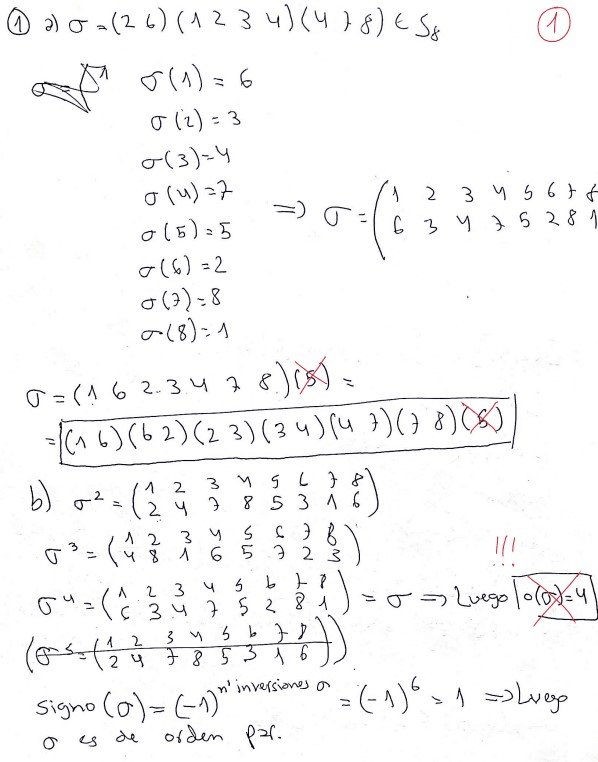 ① a) σ = (2 6) (1 2 3 4) (4 7 8) ∈ S₈ ①
σ(1) = 6
σ(2) = 3
σ(3) = 4
σ(4) = 7
σ(5) = 5
σ(6) = 2
σ(7) = 8
σ(8) = 1
=> σ = ( 1 2 3 4 5 6 7 8
6 3 4 7 5 2 8 1
σ = (1 6 2 3 4 7 8) (5) =
= (1 6) (6 2) (2 3) (3 4) (4 7) (7 8) (5)
b) σ² = ( 1 2 3 4 5 6 7 8
2 4 7 8 5 3 1 6 )
σ³ = ( 1 2 3 4 5 6 7 8
4 8 1 6 5 7 2 3 )
!!!
σ⁴ = ( 1 2 3 4 5 6 7 8
6 3 4 7 5 2 8 1 ) = σ => Luego o(σ) = 4
(σ⁵ = ( 1 2 3 4 5 6 7 8
2 4 7 8 5 3 1 6 ))
signo (σ) = (-1)^nº inversiones σ = (-1)⁶ = 1 => Luego
σ es de orden par.